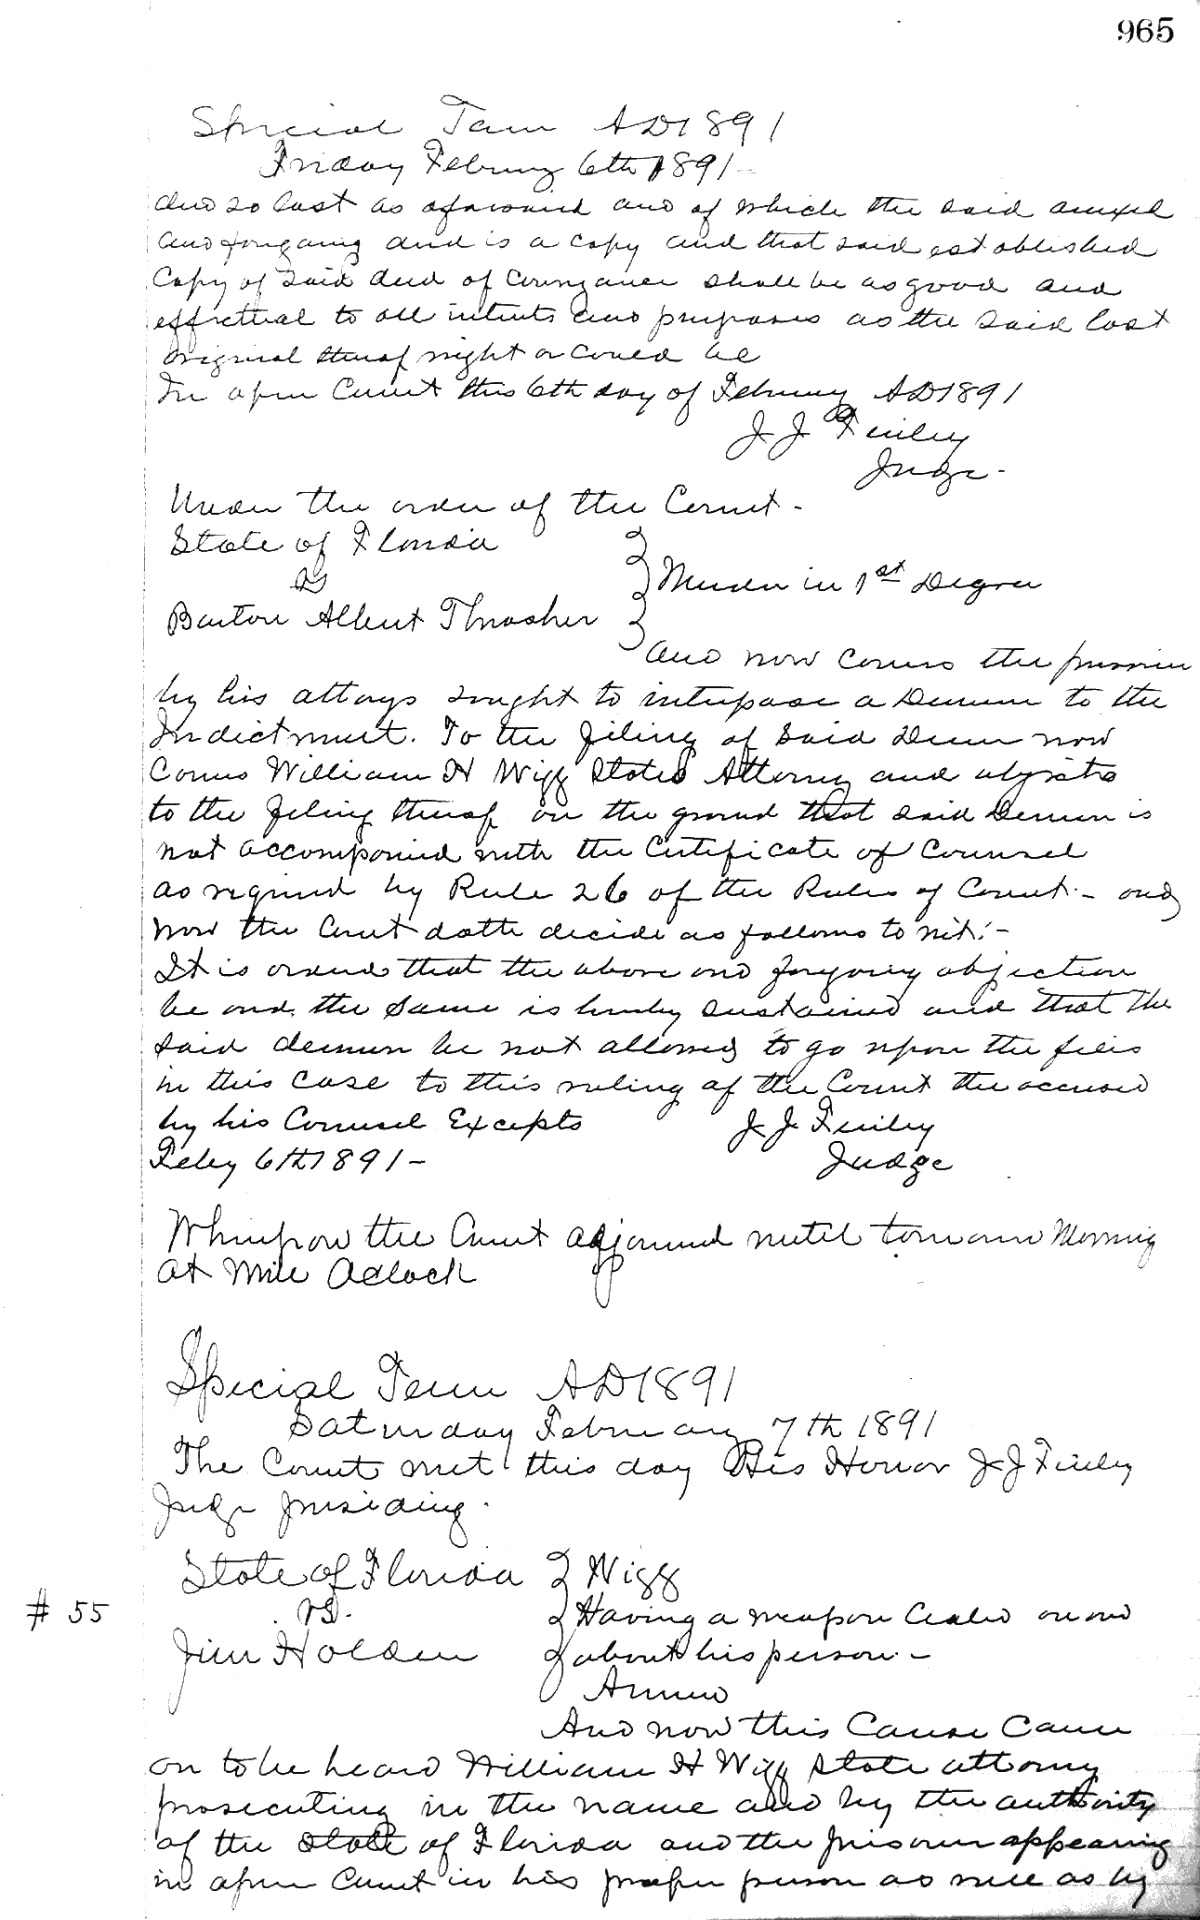 965
Special Term AD1891
Friday February 6th 1891
and so lost as aforesaid and of which the said annexed
and foregoing deed is a copy and that said established
Copy of said deed of conveyance shall be as good and
effectual to all intents and purposes as the said lost
original thereof might or could be
In open Court this 6th day of February AD1891
J J Finley
Judge -
Under the order of the Court -
State of Florida
vs
Murder in 1st Degree
Barton Albert Thrasher
And now comes the prisoner
by his attays sought to interpose a Demurrer to the
Indictment. To the filing of said Demurrer now
Comes William H Wigg States Attorney and objects
to the filing thereof on the ground that said Demurrer is
not accompanied with the Certificate of Counsel
as required by Rule 26 of the Rules of Court - and
now the Court doth decide as follows to wit:-
It is ordered that the above and foregoing objection
be and the same is hereby sustained and that the
said demurrer be not allowed to go upon the files
in this case to this ruling of the Court the accused
by his Counsel Excepts
J J Finley
Feby 6th 1891 -
Judge
Whereupon the Court adjourned until tomorrow Morning
at Nine Oclock
Special Term AD1891
Saturday February 7th 1891
The Court met this day His Honor J J Finley
Judge presiding.
State of Florida
Wigg
# 55
vs.
Having a weapon on and
Jim Holden
about his person -
And now this Cause Came
on to be heard William H Wigg State attorney
prosecuting in the name and by the authority
of the State of Florida and the prisoner appearing
in open Court in his proper person as well as by